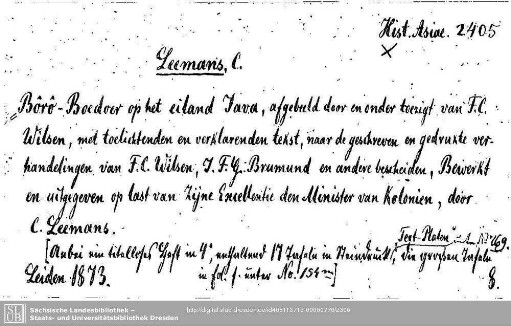 Hist. Asiae. 2405
Leemans, C.
Bôrô-Boedoer op het eiland Java, afgebeeld door en onder toezigt van F.C.
Wilsen, met toelichtenden en verklarenden tekst, naar de geschreven en gedrukte ver-
handelingen van F.C. Wilsen, J.F.G. Brumund en andere bescheiden, Bewerkt
en uitgegeven op last van Zijne Excellentie den Minister van Kolonien, door
C. Leemans.
[Anbei ein titelloses Heft in 4° enthaltend 17 Tafeln in Steindruck; die grossen Tafeln
Leiden 1873. in fol. f. unter No. 154m] 8.
Sächsische Landesbibliothek –
Staats- und Universitätsbibliothek Dresden